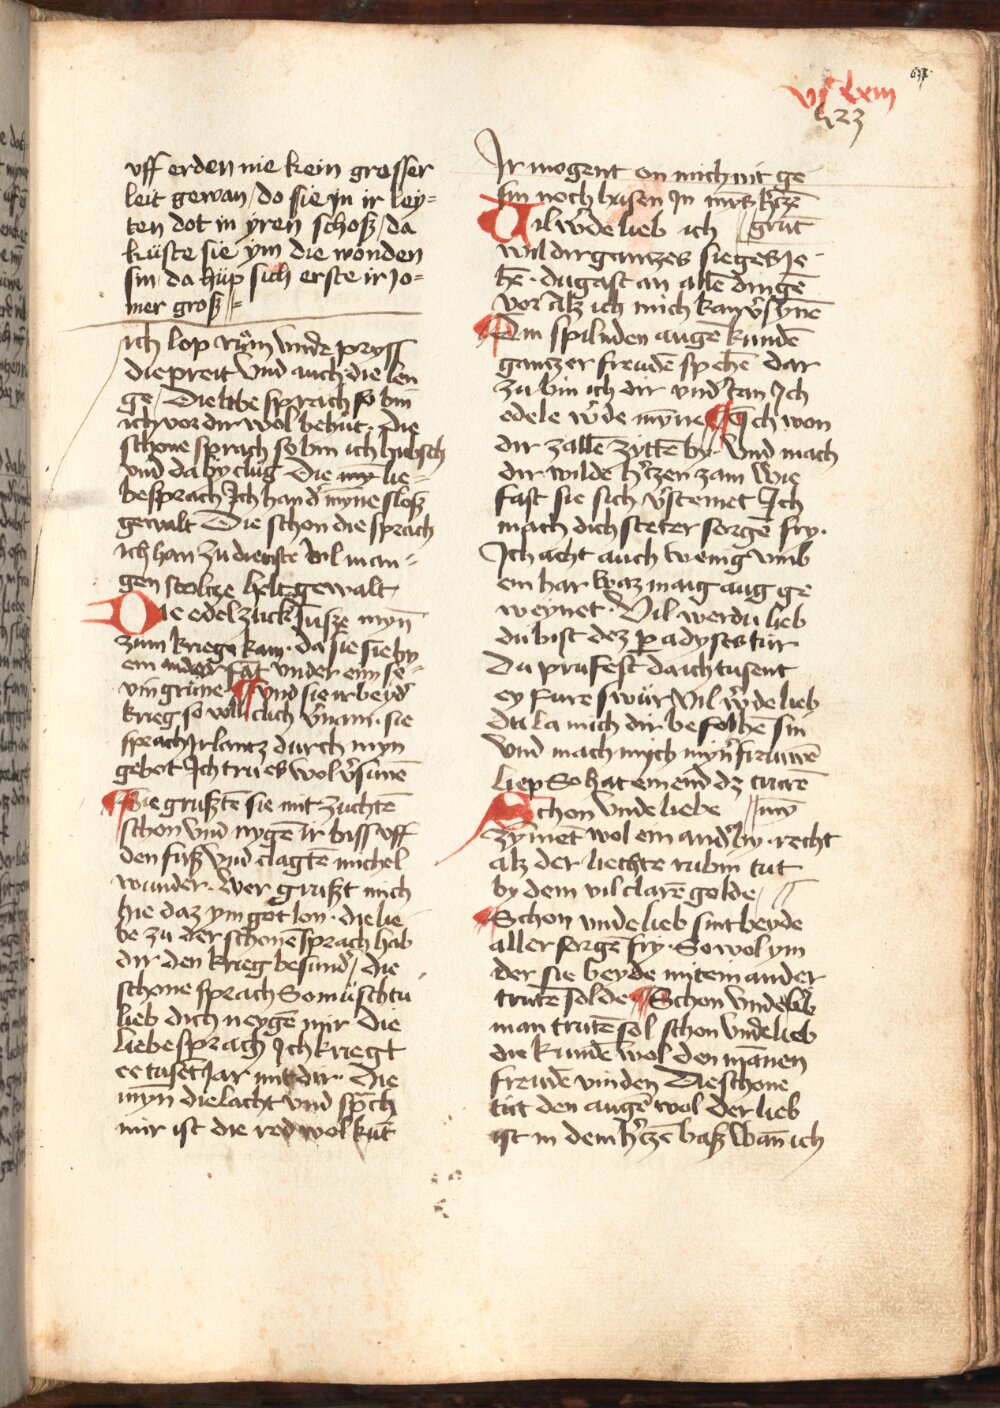 vj lxiii
623
vff erden nie kein grosser
leit gewan / do sie jn ir ley=
ten dot in yren schoß / da
küste sie ym die wonden
sin / da hüp sich erste ir jo=
mer groß
ich lop rům vnde pryss
die preit vnd auch die len
ge / Die liebe sprach so bin
ich vor dir wol behůt · die
schone sprach so bin ich hubsch
vnd da by clůg Die my lie=
besprach Ich han d' myne sloß
gewalt Die schon die sprach
ich han zu dienste vil man=
gen stoltze helt gewalt
Die edel zuck Jusze myn̄
zum kriege kam · da sie sie by
ein ander fāt vnder eim se=
vin grüne vnd sie ir beyd'
krieg so vollēclich v'nam · sie
sprach Irlantz durch myn
gebot Ich tru es wol v'sūnē
Sie grußtē sie mit zuchtē
schon vnd nygē ir biss vff
den füß vnd clagtē michel
wunder · Wer grußt mich
hie daz ym got lon · die lie
be zu der schonē sprach hab
dir den krieg besund' / die
schone sprach So müschtu
lieb dich neygē mir die
liebe sprach Ich kriegt
ee tusēt Jar mit dir · die
myn̄ die lacht vnd sp̄ch
mir ist die red wol kūt
Ir mogent on mich nit ge
sin noch husen In myns h'tzē
grūt
Vil w'de lieb ich
wil dir gantzes sieges ie
hē · du gast an allē dingē
vor Alz ich mich kan v'synē
Din spilnden augē kundē
gantzer freudē spehē dar
zu bin ich dir vnd'tan Ich
edele w'de myne Ich won
dir zallē zyttē by · vnd mach
dir wilde h'tzen zam Wie
fast sie sich v'steinet Ich
mach dich steter sorgē fry ·
Ich acht auch wenig vmb
ein har waz maig aug ge
weynet · Vil werdu lieb
du bist dez padyses tür
Du prufest da ich tusent
ey fure swür Vil w'de lieb
du la mich dir befolhē sin
vnd mach mych myn' frauwē
liep So hat ein end dz trurē
myn
Schon vnde liebe
zymēt wol ein and' by · recht
alz der liechte rubin tut
by dem vil clarē golde
Schon vnde lieb sint beyde
aller sorgē fry · So wol ym
der sie beyde mit ein ander
trutē solde Schon vnde lieb
man trutē sol schon vnde lieb
die kundē wol den mānen
freudē vinden Die schone
tüt den augē wol der lieb
ist in dem h'tzē baß Wan ich